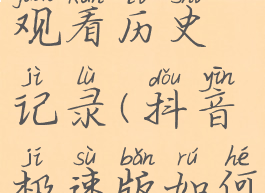 观看历史
jì lù dǒu yīn
记录(抖音
jí sù bǎn rú hé
极速版如何